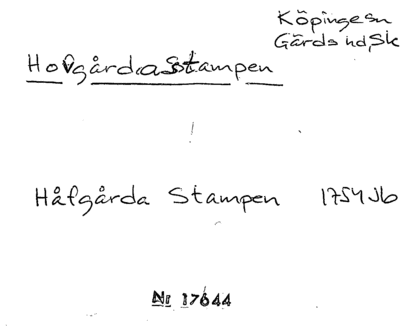 Köpinge sn
Gärds hd, Sk
Hovgårda Stampen
Håfgårda Stampen 1754 Jb
Nr 17644